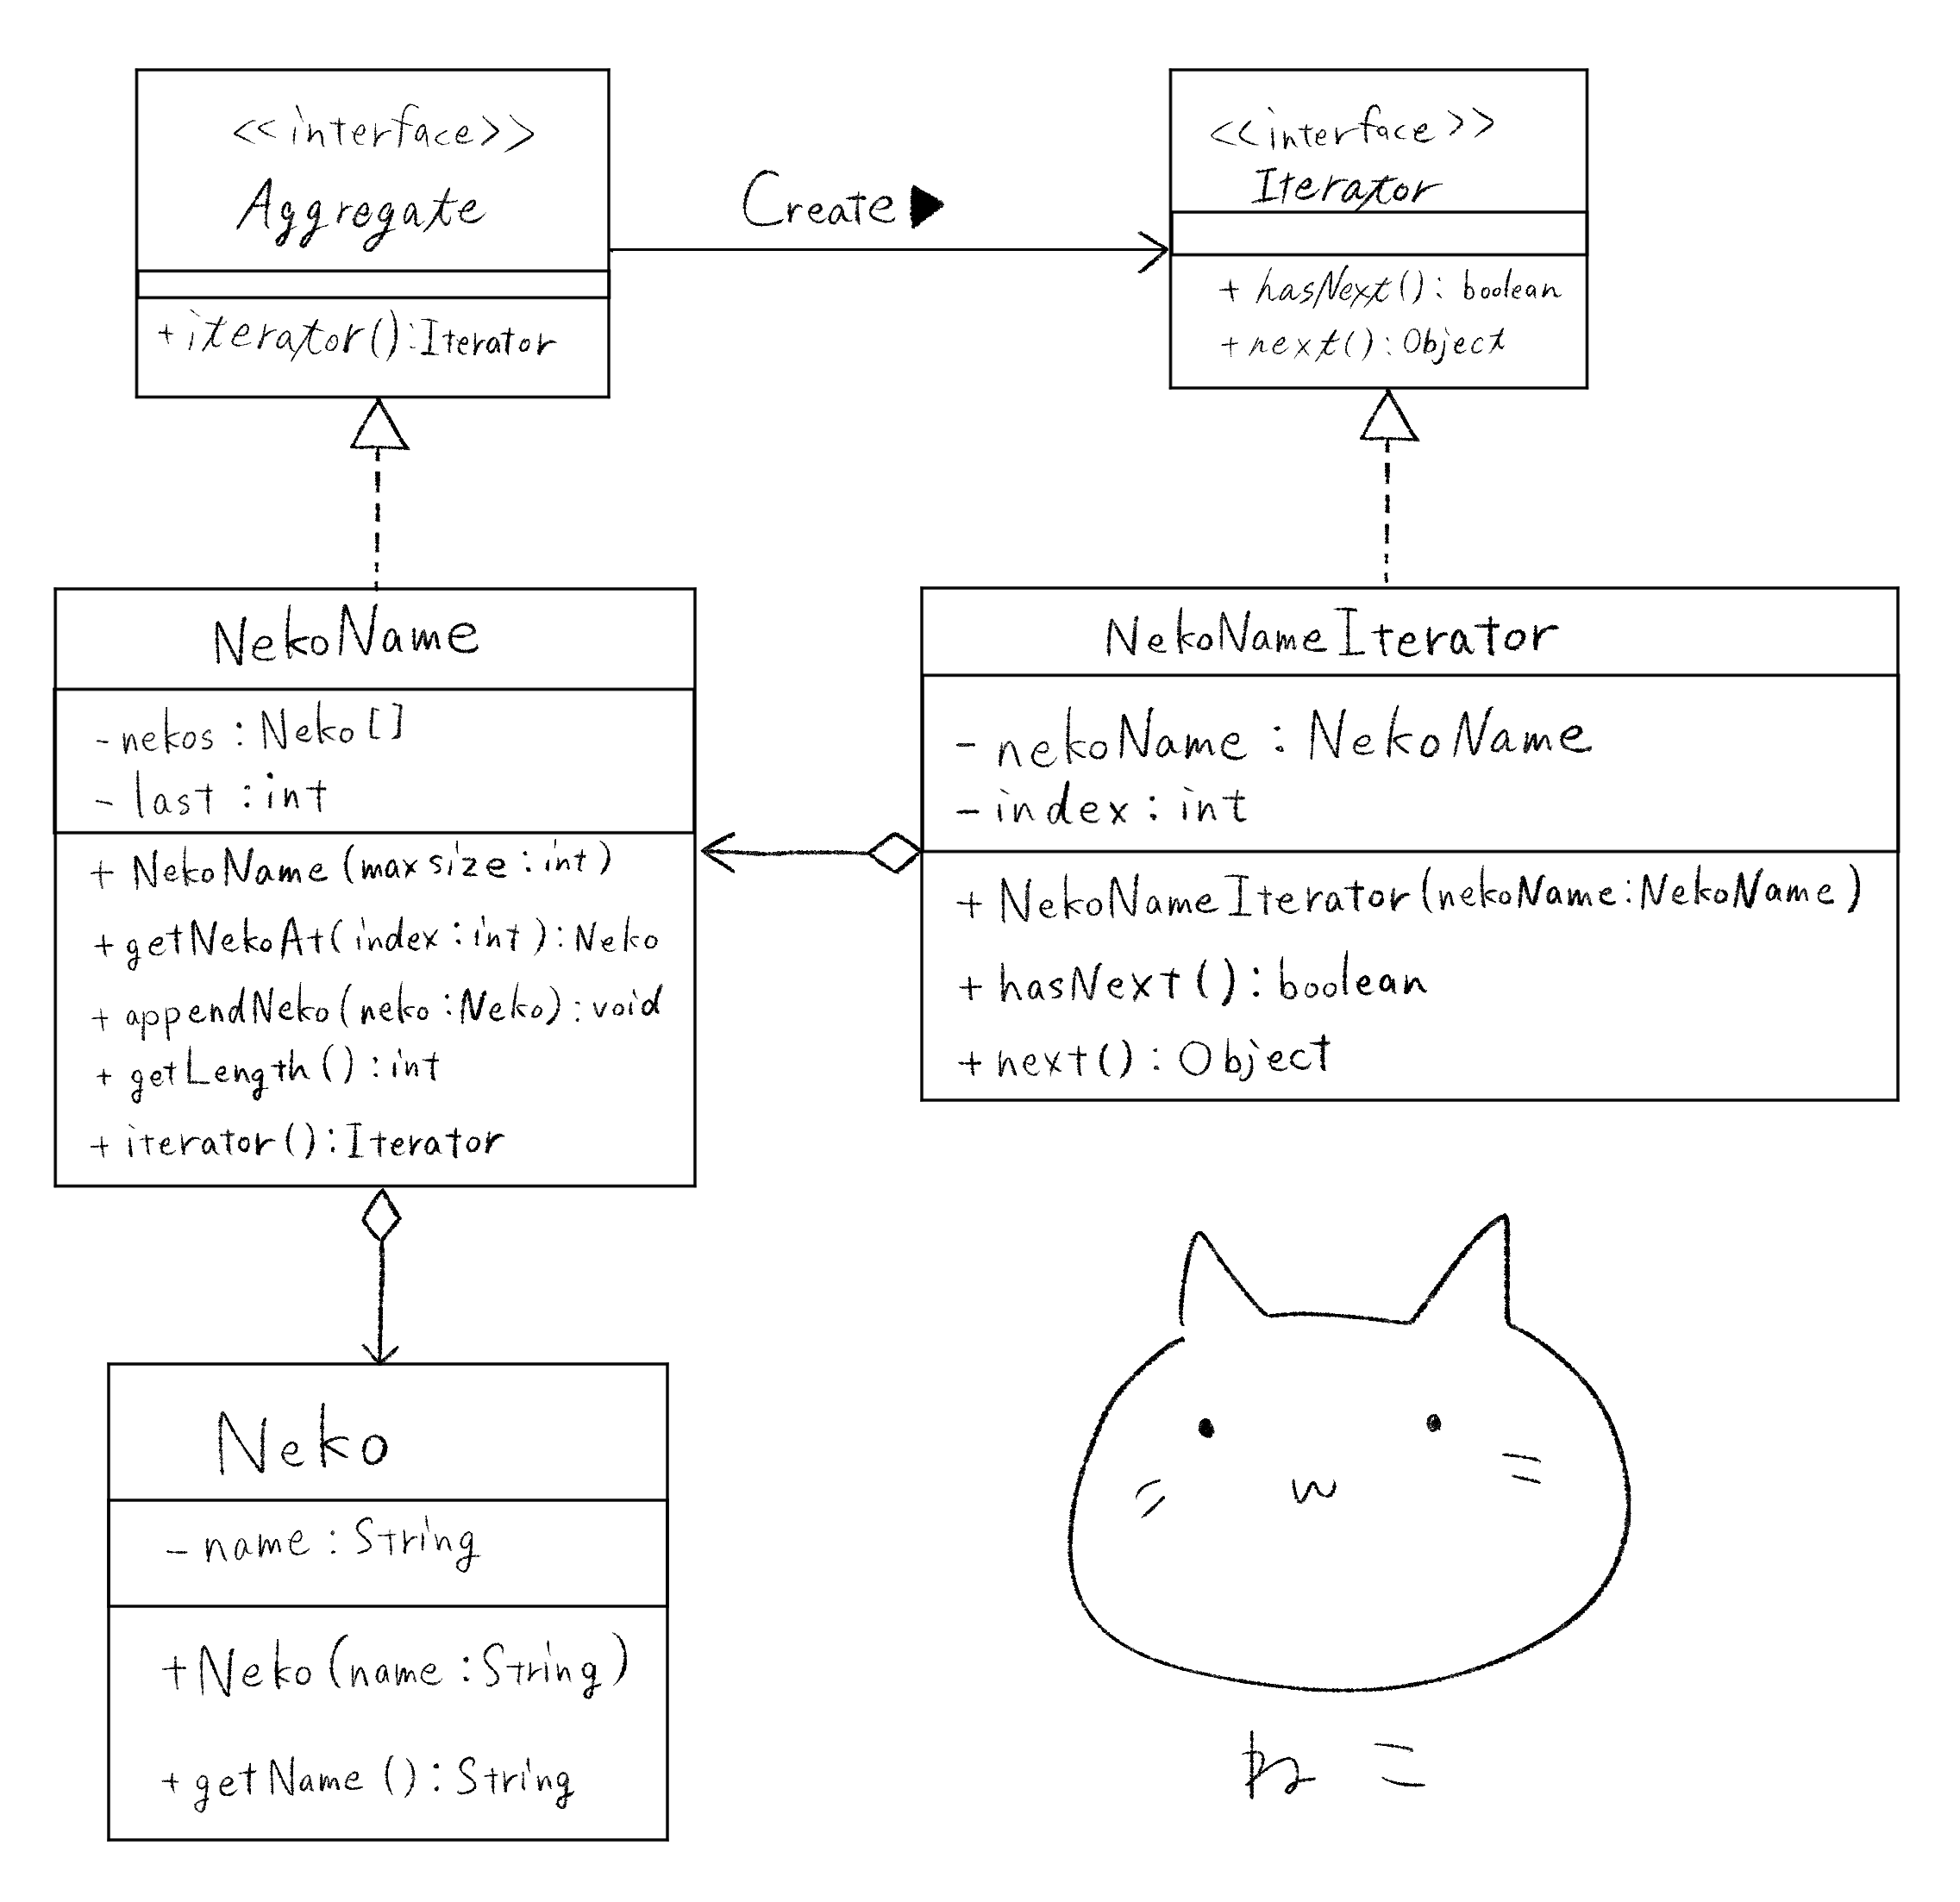 <<interface>>
Aggregate
+iterator():Iterator
Create▶
<<interface>>
Iterator
+ hasNext(): boolean
+next():Object
NekoName
-nekos:Neko[]
- last:int
+ NekoName(maxsize:int)
+getNekoAt(index:int):Neko
+ appendNeko(neko:Neko):void
+ getLength():int
+ iterator():Iterator
NekoNameIterator
- nekoName:NekoName
- index:int
+ NekoNameIterator(nekoName:NekoName)
+ hasNext():boolean
+ next():Object
Neko
- name:String
+Neko(name:String)
+ getName():String
ねこ